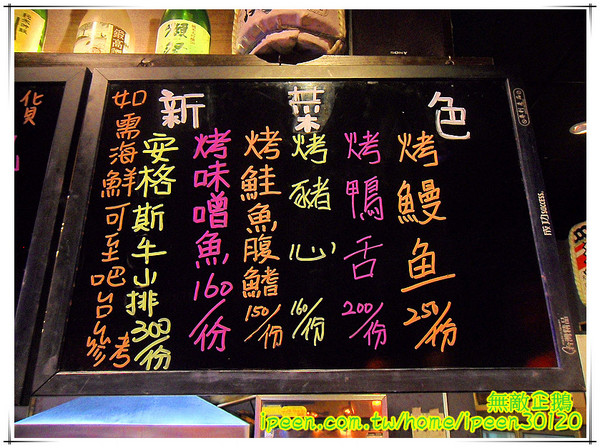 新菜色
烤鰻魚250/份
烤鴨舌200/份
烤豬心160/份
烤鮭魚腹鰭150/份
烤味噌魚160/份
安格斯牛小排300/份
如需海鮮可至吧台參考
貨
SONY
成功 SUCCESS.
無敵企鵝
ipeen.com.tw/home/ipeen30120